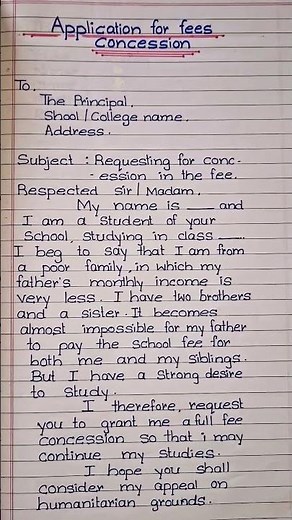 Application for fees
concession
To.
The Principal.
Shool / College name.
Address.
Subject : Requesting for conc-
-ession in the fee.
Respected Sir / Madam.
My name is ___ and
I am a Student of your
School, studying in class ___.
I beg to say that I am from
a poor family, in which my
father's monthly income is
very less. I have two brothers
and a sister. It becomes
almost impossible for my father
to pay the school fee for
both me and my siblings.
But I have a strong desire
to study.
I therefore, request
you to grant me a full fee
concession so that i may
continue my studies.
I hope you shall
consider my appeal on
humanitarian grounds.